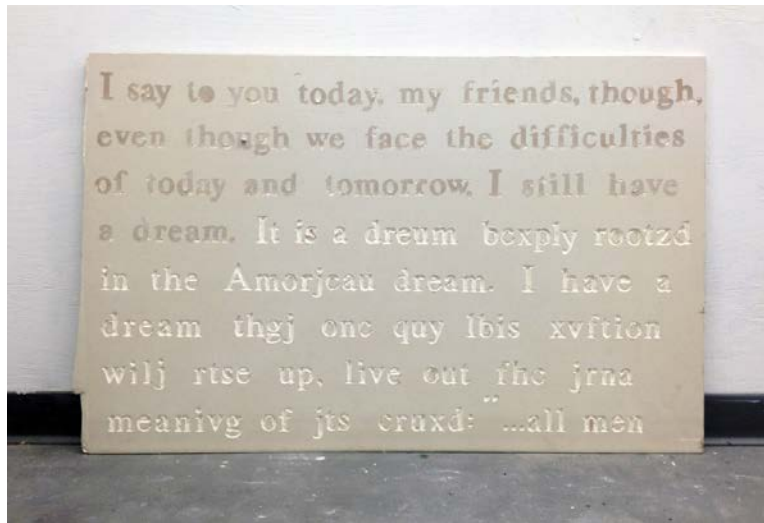 I say to you today, my friends, though,
even though we face the difficulties
of today and tomorrow. I still have
a dream. It is a dreum bcxply rootzd
in the Amorjcau dream. I have a
dream thgj onc quy lbis xvftion
wilj rtse up, live out fhc jrna
meanivg of jts cruxd: "...all men